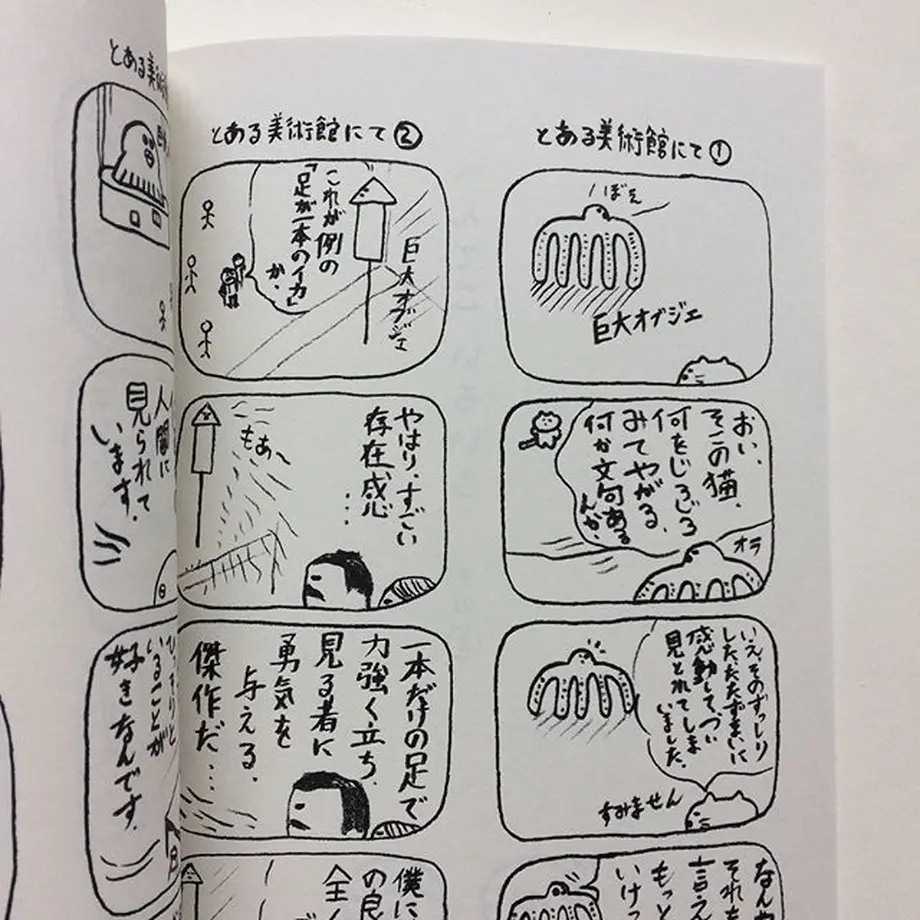 とある美術館にて①
ぼえ
巨大オブジェ
おい、
そこの猫、
何をじろじろ
みてやがる、
何か文句ある
んか、
オラ
いえ、そのずっしり
したたたずまいに
感動して、つい
見とれてしま
いました、
すみません
なん
それ
言え
もっと
いけ
とある美術館にて②
これが例の
「足が一本のイカ」
か、
巨大オブジェ
やはり、すごい
存在感
…
もあ、
一本だけの足で
力強く立ち、
見る者に
勇気を
与える、
傑作だ…
僕に
の良
全く
とある美術
人間に
見られて
います、
いることが
好きなんです、